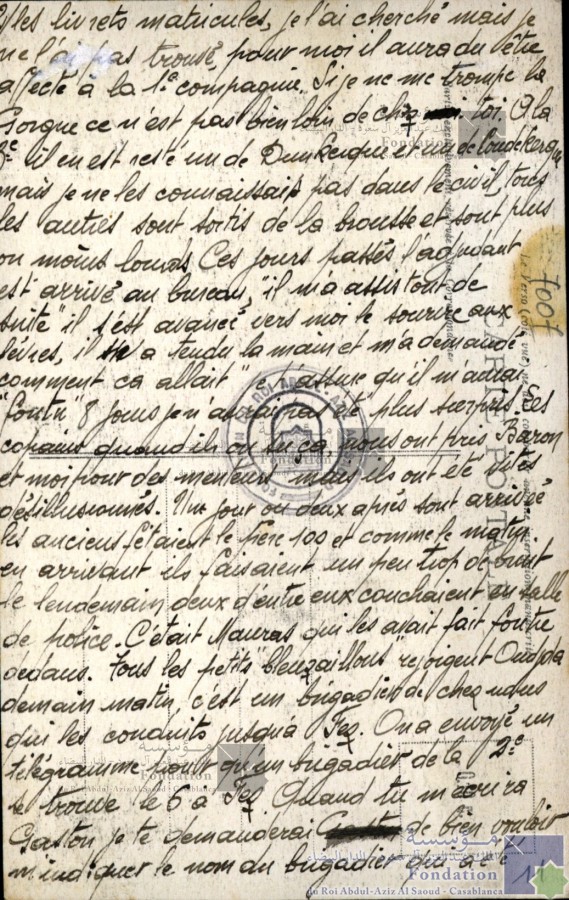 les livrets matricules, je l'ai cherché mais je
ne l'ai pas trouvé, pour moi il aura du être
affecté à la 1e compagnie. Si je ne me trompe la
Gorgue ce n'est pas bien loin de chez toi. A la
il en est resté un de Dunkerque et un de Coudekerque
mais je ne les connaissais pas dans le civil, tous
les autres sont sortis de la brousse et sont plus
ou moins lourds. Ces jours passés l'adjudant
est arrivé au bureau, "il m'a assis tout de
suite" il s'est avancé vers moi le sourire aux
lèvres, il m'a tendu la main et m'a demandé
comment ca allait" je t'assure qu'il m'aurai
"foutu" 8 jours je n'aurai pas été plus surpris. Les
copains quand ils ont su ça, nous ont pris Baron
et moi pour des meneurs mais ils ont été vites
désillusionnés. Une jour ou deux après sont arrivés
les anciens c'étaient le père 100 et comme le matin
en arrivant ils faisaient un peu trop de bruit
le lendemain deux d'entre eux couchaient en salle
de police. C'était Mauras qui les avait fait foutre
dedans. Tous les petits "bleuzaillons" rejoigent Oudjda
demain matin, c'est un brigadier de chez nous
qui les conduits jusqu'à Fez. On a envoyé un
télégramme pour qu'un brigadier de la 2e
se trouve le 6 à Fez. Quand tu m'écrira
Gaston je te demanderai de bien vouloir
m'indiquer le nom du brigadier qui a été
7001
CARTE POSTALE
مؤسسة
Fondation
du Roi Abdul-Aziz Al Saoud - Casablanca
11